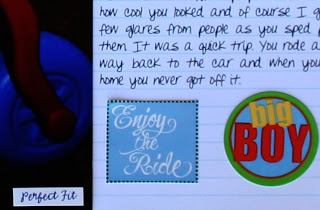 how cool you looked and of course I g
few glares from people as you sped p
them. It was a quick trip. You rode a
way back to the car and when you
home you never got off it.
Enjoy
the
Ride
big
BOY
Perfect Fit